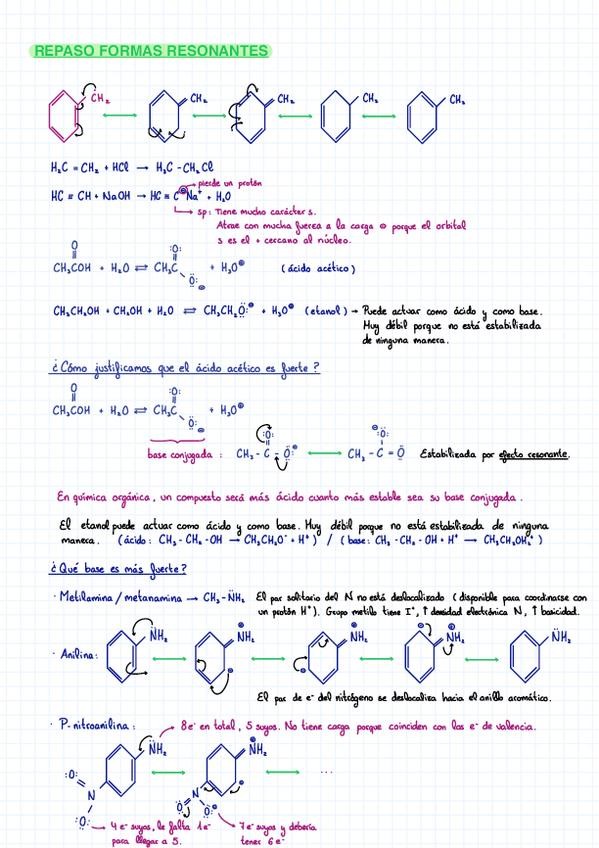 REPASO FORMAS RESONANTES
CH₂ CH₂ CH₂ CH₂ CH₂
H₂C = CH₂ + HCl → H₃C - CH₂Cl
pierde un protón
HC ≡ CH + NaOH → HC ≡ C⊖Na⁺ + H₂O
sp: Tiene mucho carácter s.
Atrae con mucha fuerza a la carga ⊖ porque el orbital
s es el + cercano al núcleo.
O :O:
CH₃COH + H₂O ⇌ CH₃C + H₃O⊕ (ácido acético)
:O:⊖
CH₃CH₂OH + CH₃OH + H₂O ⇌ CH₃CH₂O:⊖ + H₃O⊕ (etanol) → Puede actuar como ácido y como base.
Muy débil porque no está estabilizada
de ninguna manera.
¿Cómo justificamos que el ácido acético es fuerte?
O :O:
CH₃COH + H₂O ⇌ CH₃C + H₃O⊕
:O:⊖
:O: ⊖:O:
base conjugada: CH₃ - C - O:⊖ ⟷ CH₃ - C = O Estabilizada por efecto resonante.
En química orgánica, un compuesto será más ácido cuanto más estable sea su base conjugada.
El etanol puede actuar como ácido y como base. Muy débil porque no está estabilizada de ninguna
manera. (ácido: CH₃ - CH₂ - OH → CH₃CH₂O⁻ + H⁺) / (base: CH₃ - CH₂ - OH + H⁺ → CH₃CH₂OH₂⁺)
¿Qué base es más fuerte?
· Metilamina / metanamina → CH₃-NH₂ El par solitario del N no está deslocalizado (disponible para coordinarse con
un protón H⁺). Grupo metilo tiene I⁺, ↑ densidad electrónica N, ↑ basicidad.
· Anilina: NH₂ NH₂ NH₂ NH₂ NH₂
El par de e⁻ del nitrógeno se deslocaliza hacia el anillo aromático.
· P-nitroanilina: 8e⁻ en total, 5 suyos. No tiene carga porque coinciden con los e⁻ de valencia.
NH₂ NH₂
...
:O: N :O: N O O
4 e⁻ suyos, le falta 1e⁻ 7e⁻ suyos y debería
para llegar a 5. tener 6 e⁻